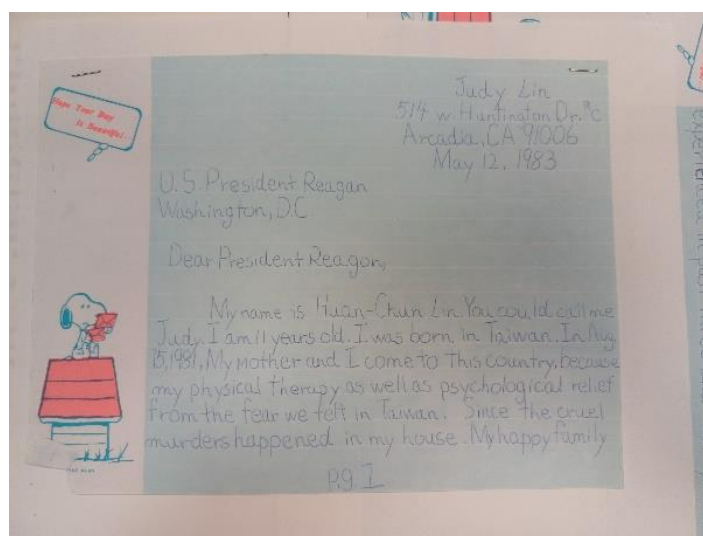 Hope Your Day
Is Beautiful.
Judy Lin
514 W. Huntington Dr. #C
Arcadia, CA 91006
May 12, 1983
U.S. President Reagan
Washington, D.C
Dear President Reagon,
My name is Huan-Chun Lin. You could call me
Judy. I am 11 years old. I was born in Taiwan. In Aug
15, 1981, My Mother and I come to This country, because
my physical therapy as well as psychological relief
from the fear we felt in Taiwan. Since the cruel
murders happened in my house. My happy family
P.g 1
experienced